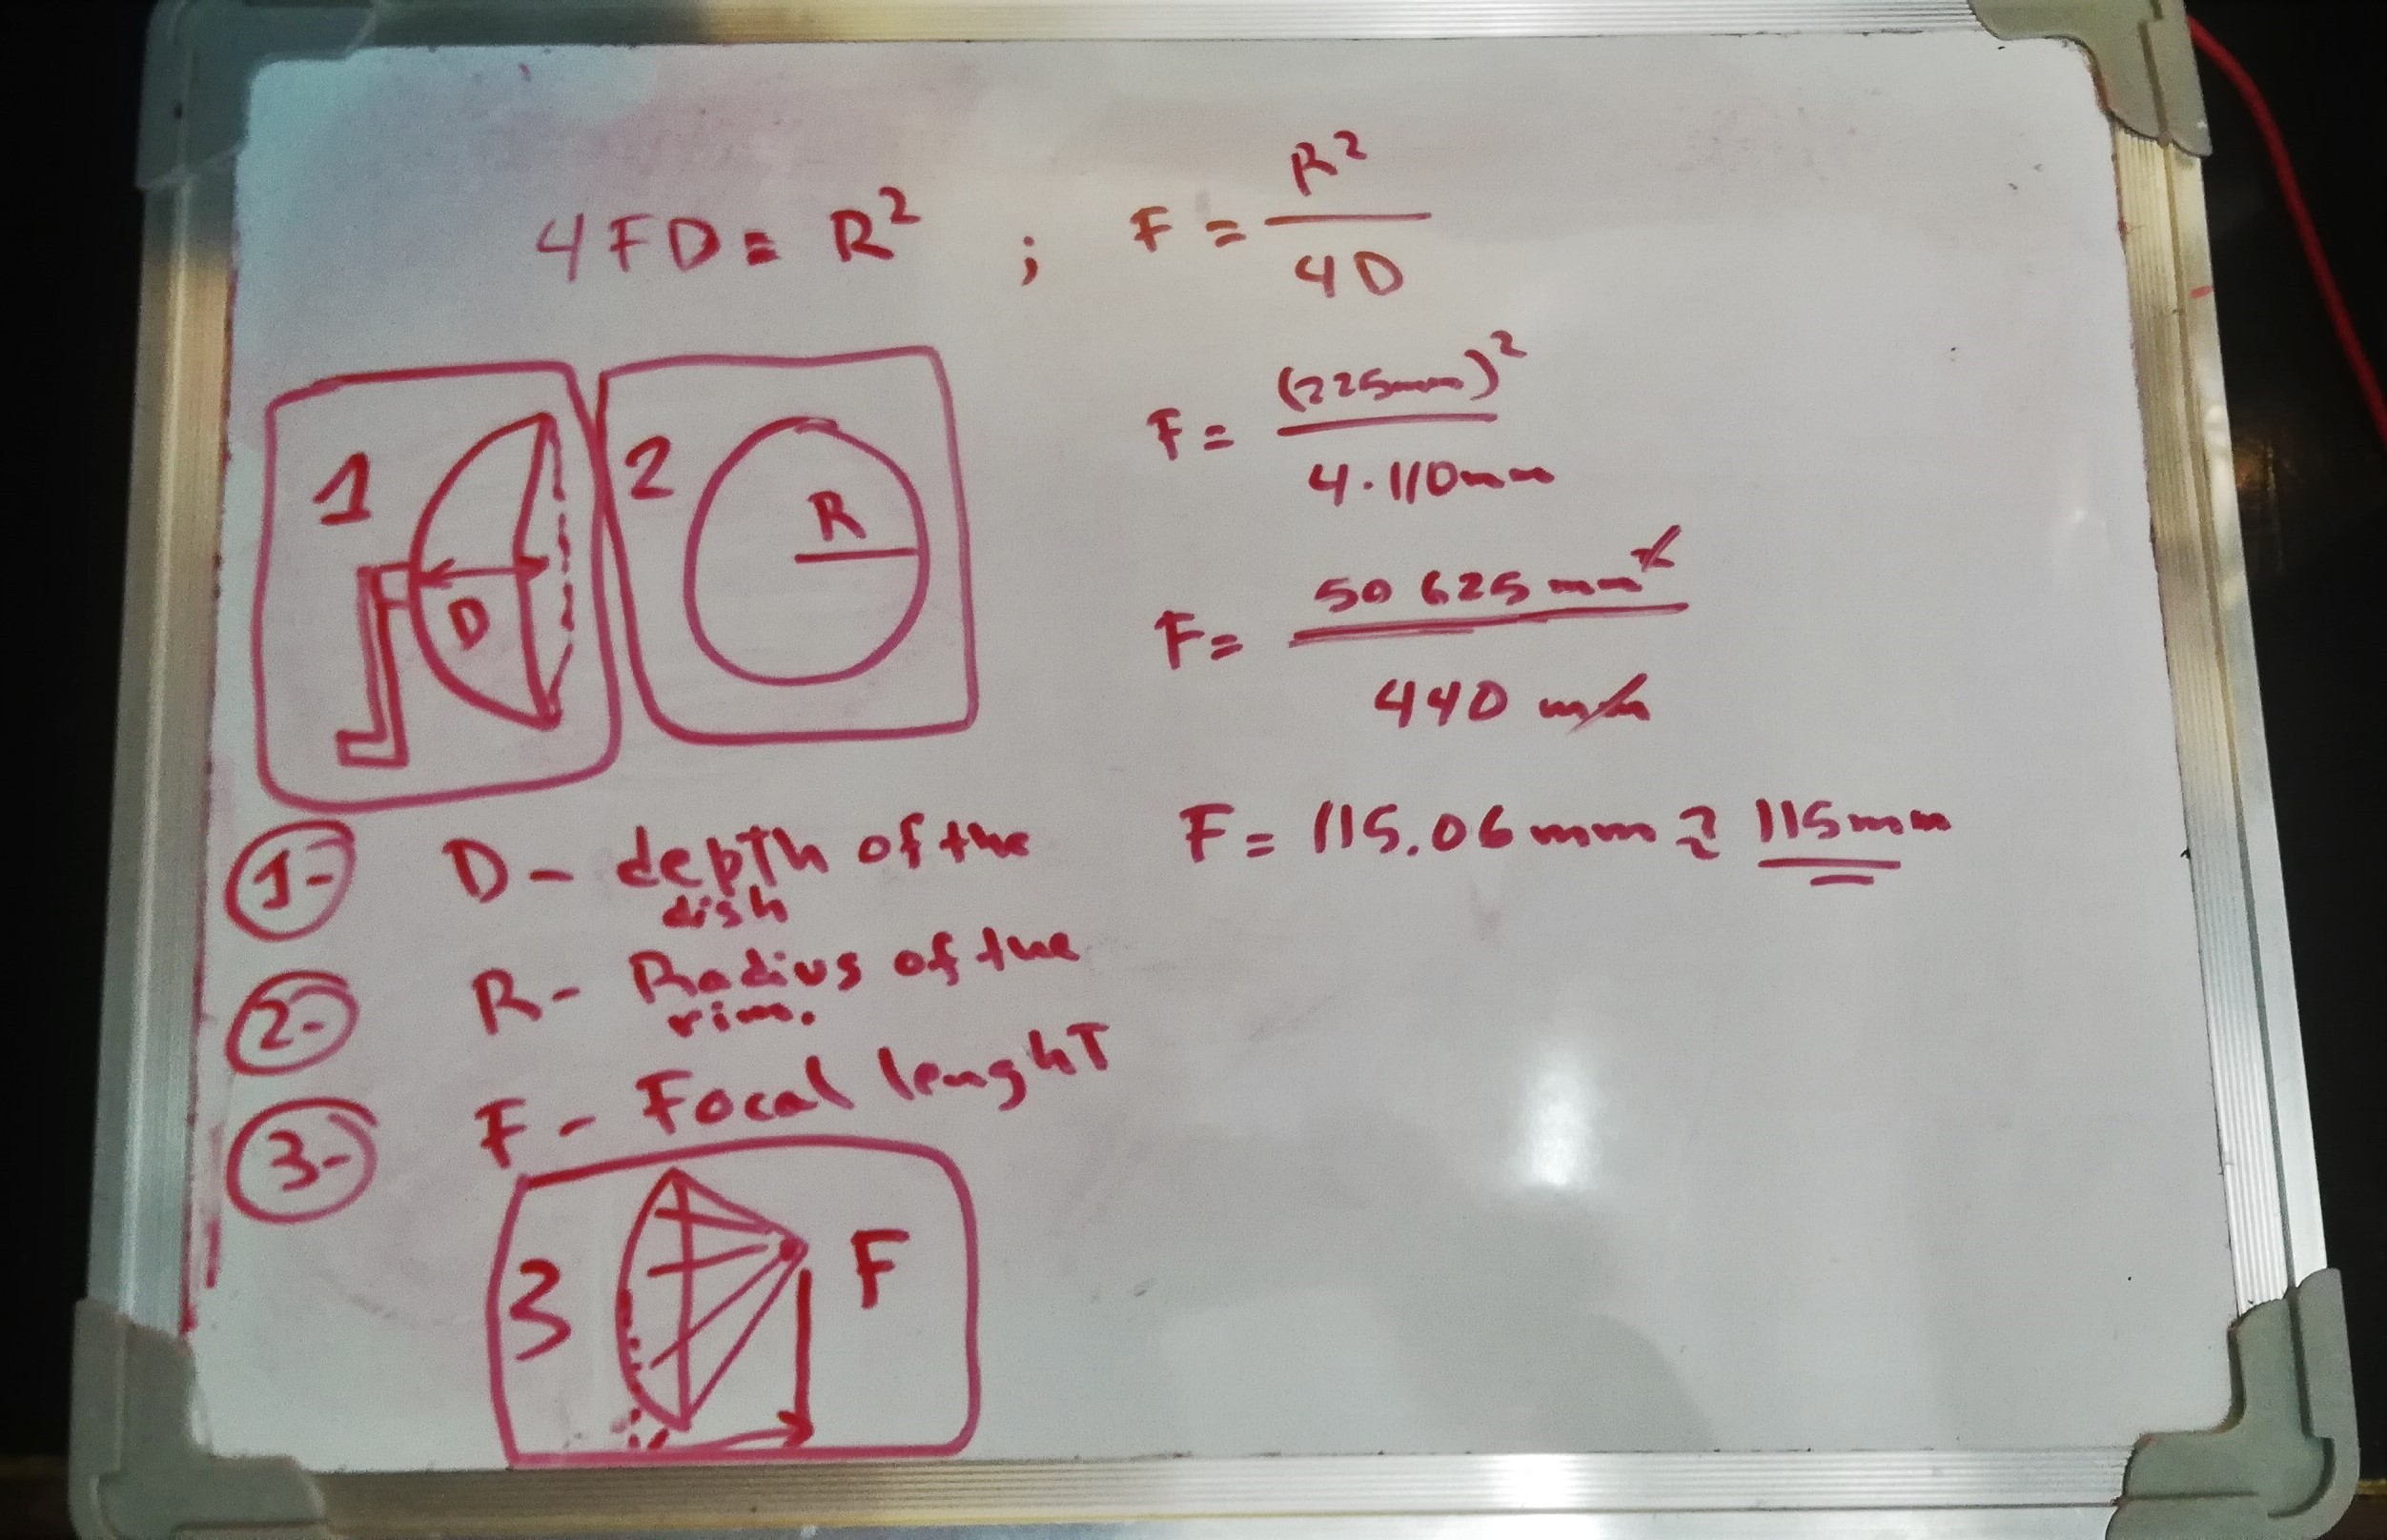 4FD = R² ; F = R²/4D
1 D
2 R
F = (225mm)²/4·110mm
F = 50 625 mm²/440 mm
F = 115.06mm ≈ 115mm
1- D - depth of the
dish
2- R - Radius of the
rim.
3- F - Focal lenghT
3 F